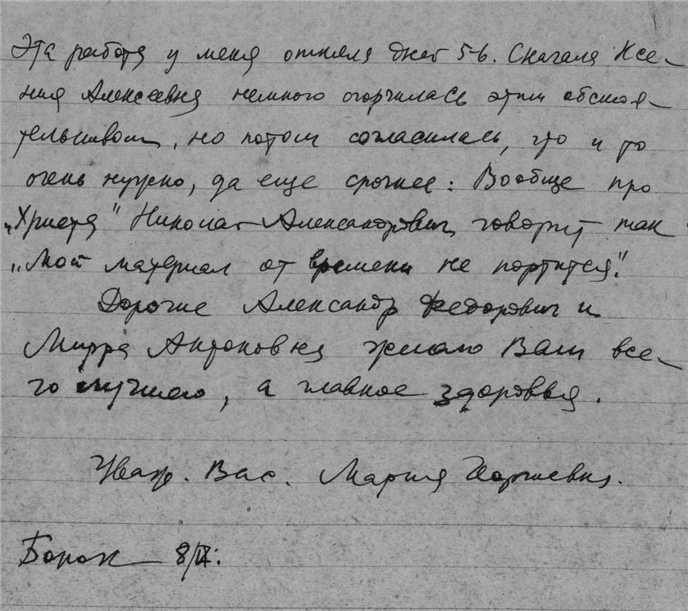 Эта работа у меня отняла дней 5-6. Сначала Ксе-
ния Алексеевна немного огорчилась этим обстоя-
тельством, но потом согласилась, что и то
очень нужно, да еще срочнее: Вообще про
„Христа" Николай Александрович говорит так
„Мой материал от времени не портится."
Дорогие Александр Федорович и
Мирра Антоновна желаю Вам все-
го лучшего, а главное здоровья.
Уваж. Вас. Мария
Борок 8/IX.